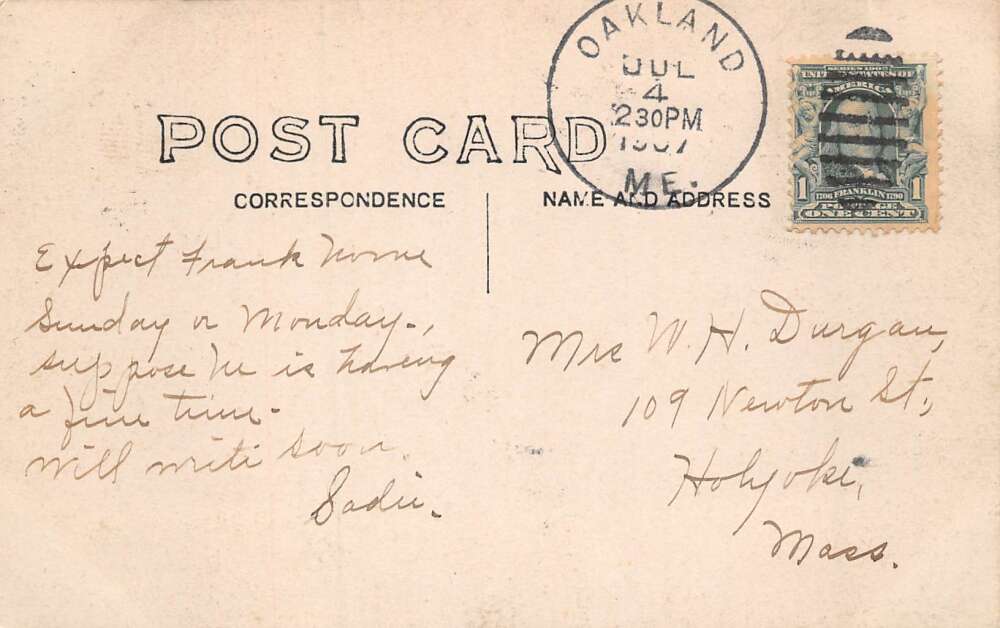 OAKLAND
JUL
4
2 30PM
1907
ME.
SERIES 1902
UNITED STATES OF
AMERICA
1 1
1706 FRANKLIN 1790
POSTAGE
ONE CENT
POST CARD
CORRESPONDENCE
NAME AND ADDRESS
Expect Frank home
Sunday or Monday.,
suppose he is having
a fine time.
Will write soon.
Sadie.
Mrs W. H. Durgan,
109 Newton St.,
Holyoke,
Mass.